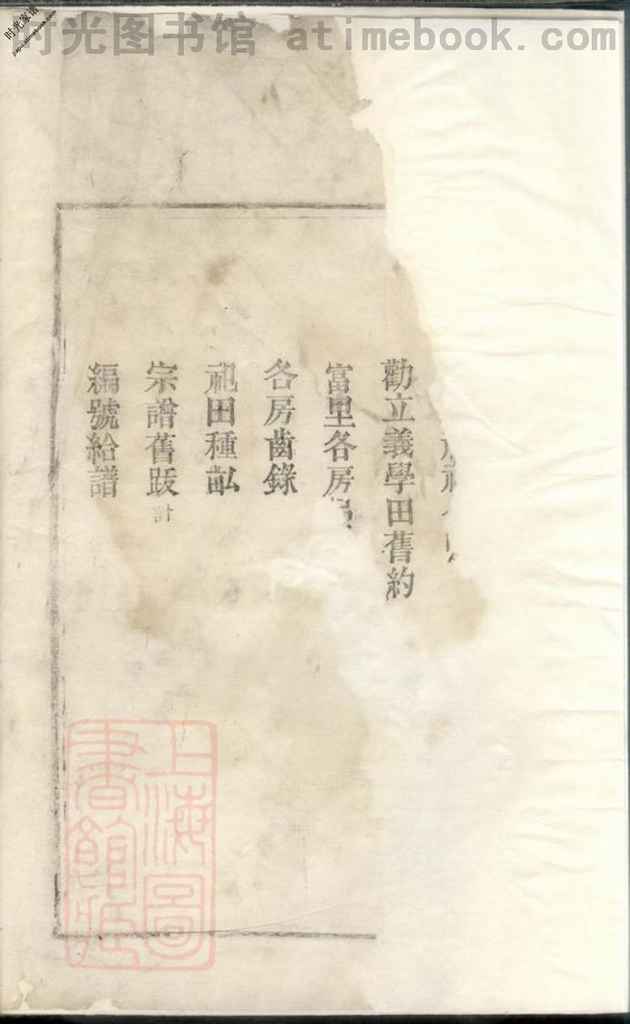 时光图书馆 atimebook.com
时光图书馆
勸立義學田舊約
富里各房
各房齒錄
祀田種畝
宗譜舊跋
計
編號給譜
上海圖
書館藏